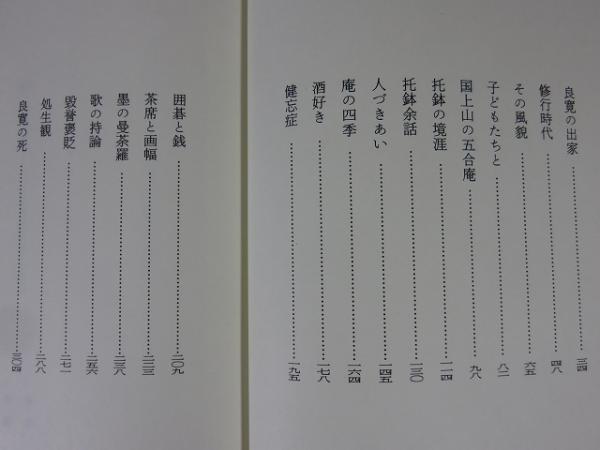 良寛の出家……三四
修行時代……四八
その風貌……六五
子どもたちと……八二
国上山の五合庵……九八
托鉢の境涯……一一四
托鉢余話……一三〇
人づきあい……一四五
庵の四季……一六四
酒好き……一七八
健忘症……一九五
囲碁と銭……二〇九
茶席と画幅……二二三
墨の曼荼羅……二三八
歌の持論……二五六
毀誉褒貶……二七一
処生観……二八八
良寛の死……三〇四